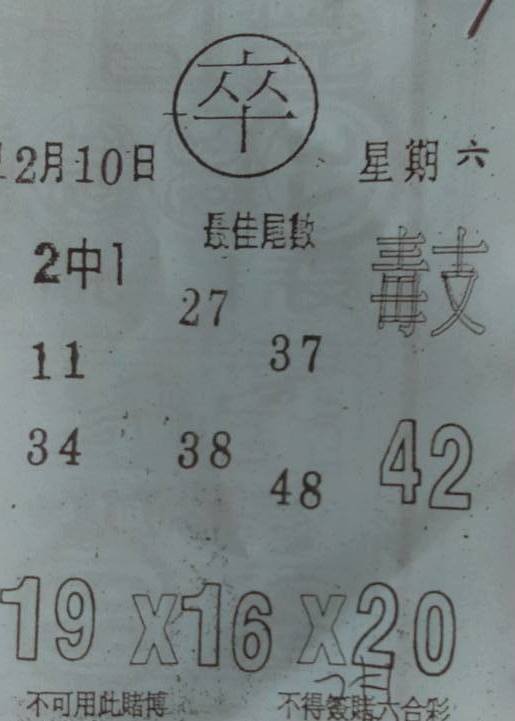 卒
12月10日 星期六
最佳尾數
2中1 毒支
27
11 37
34 38 42
48
19X16X20
不可用此賭博 不得簽賭六合彩